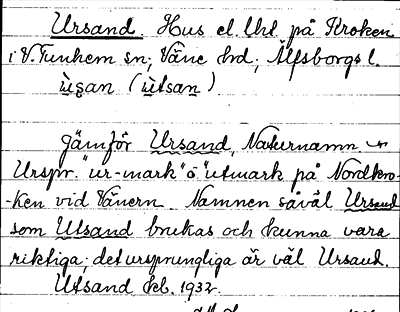 Ursand, Hus el. lht på Kroken
i V. Tunhem sn; Väne hd; Älfsborgs l.
ùṣan (ùtsan)
Jämför Ursand, Naturnamn.
Urspr. "ur-mark" ö "utmark på Nordkro-
-ken vid Vänern. Namnen såväl Ursand
som Utsand brukas och kunna vara
riktiga; det ursprungliga är väl Ursand.
Utsand kb. 1932.